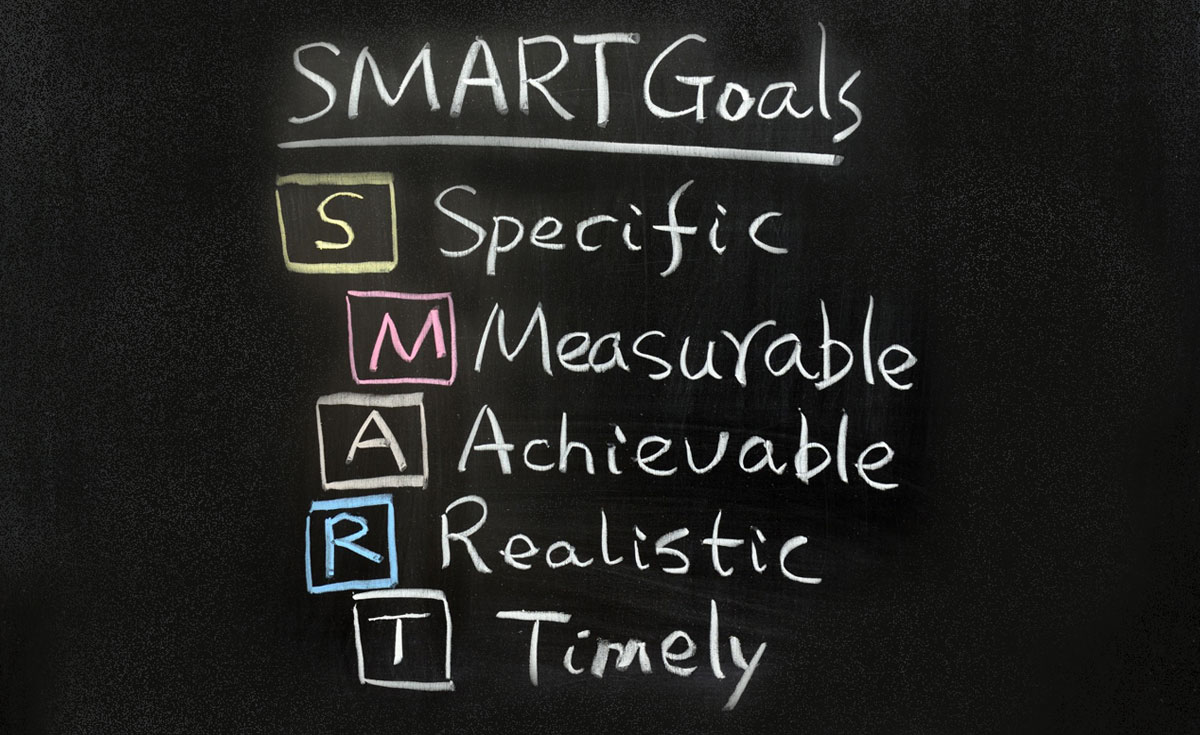 SMART Goals
S Specific
M Measurable
A Achievable
R Realistic
T Timely